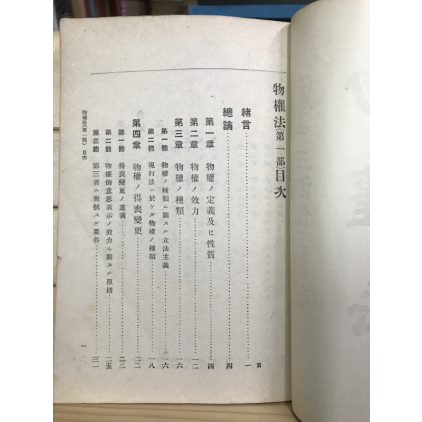 物權法第一部目次
頁
緒言 一
總論 四
第一章 物權ノ定義及ヒ性質 四
第二章 物權ノ效力 一二
第三章 物權ノ種類 一六
第一節 物權ノ種類ニ關スル立法主義 一六
第二節 現行法ニ於ケル物權ノ種類 一八
第四章 物權ノ得喪變更 二二
第一節 得喪變更ノ意義 二二
第二節 物權的意思表示ノ效力ニ關スル原則 二五
第三節 第三者ニ對抗スル要件 三一
物權法(第一部) 目次
一